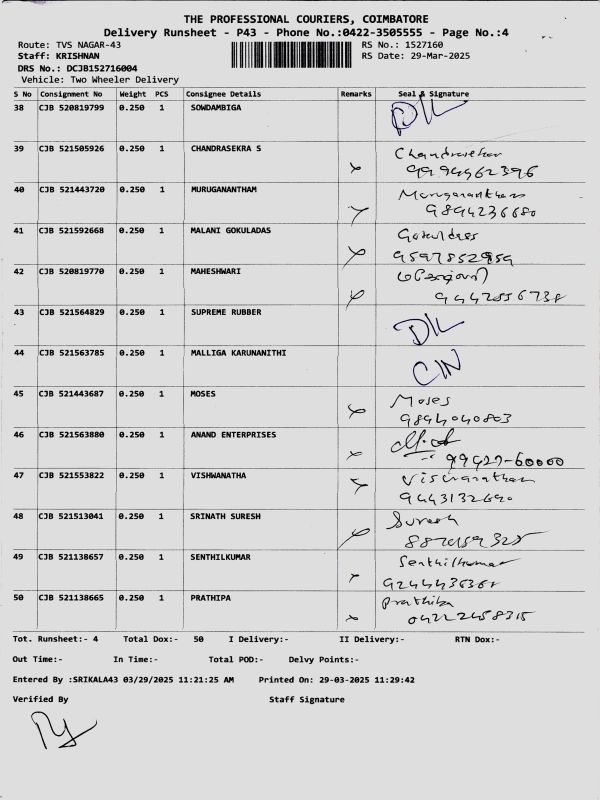 THE PROFESSIONAL COURIERS, COIMBATORE
Delivery Runsheet - P43 - Phone No.:0422-3505555 - Page No.:4
Route: TVS NAGAR-43 RS No.: 1527160
Staff: KRISHNAN RS Date: 29-Mar-2025
DRS No.: DCJB152716004
Vehicle: Two Wheeler Delivery
S No Consignment No Weight PCS Consignee Details Remarks Seal & Signature
38 CJB 520819799 0.250 1 SOWDAMBIGA
39 CJB 521505926 0.250 1 CHANDRASEKRA S Chandrasekar
9994962396
40 CJB 521443720 0.250 1 MURUGANANTHAM
9894236680
41 CJB 521592668 0.250 1 MALANI GOKULADAS Gokuldass
9597852959
42 CJB 520819770 0.250 1 MAHESHWARI
43 CJB 521564829 0.250 1 SUPREME RUBBER
44 CJB 521563785 0.250 1 MALLIGA KARUNANITHI
45 CJB 521443687 0.250 1 MOSES Moses
9894040803
46 CJB 521563880 0.250 1 ANAND ENTERPRISES
99429-60000
47 CJB 521553822 0.250 1 VISHWANATHA
9443132690
48 CJB 521513041 0.250 1 SRINATH SURESH Suresh
49 CJB 521138657 0.250 1 SENTHILKUMAR Senthilkumar
50 CJB 521138665 0.250 1 PRATHIPA Prathiba
04222458315
Tot. Runsheet:- 4 Total Dox:- 50 I Delivery:- II Delivery:- RTN Dox:-
Out Time:- In Time:- Total POD:- Delvy Points:-
Entered By :SRIKALA43 03/29/2025 11:21:25 AM Printed On: 29-03-2025 11:29:42
Verified By Staff Signature